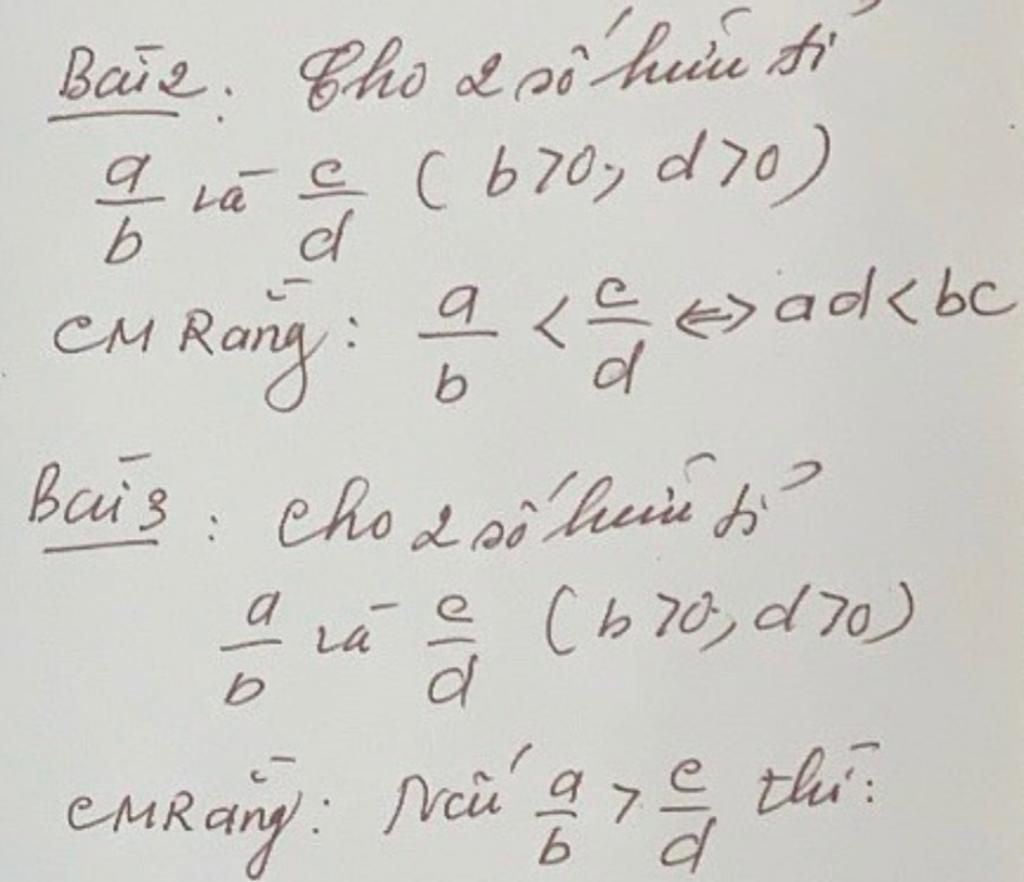 Bài 2: Cho 2 số hữu tỉ
a/b và c/d (b>0; d>0)
CM Rằng: a/b < c/d ⇔ ad < bc
Bài 3: Cho 2 số hữu tỉ
a/b và c/d (b>0; d>0)
CM Rằng: Nếu a/b > c/d thì: